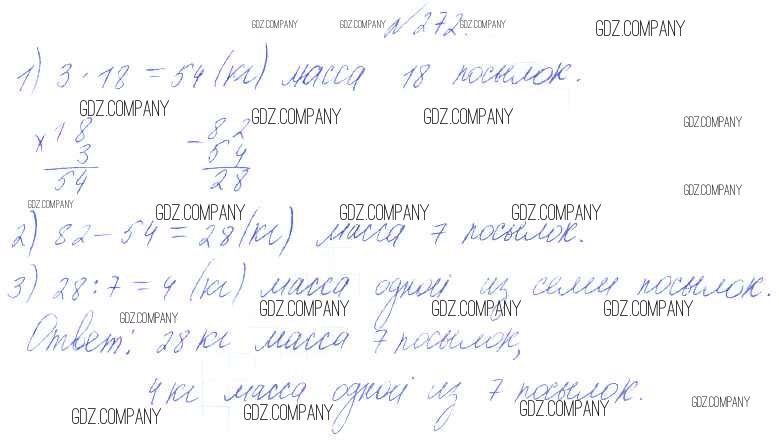 GDZ.COMPANY GDZ.COMPANY №272. GDZ.COMPANY GDZ.COMPANY
1) 3 · 18 = 54 (кг) масса 18 посылок.
GDZ.COMPANY GDZ.COMPANY GDZ.COMPANY GDZ.COMPANY
× 18 − 82
3 54
54 28
GDZ.COMPANY
GDZ.COMPANY GDZ.COMPANY GDZ.COMPANY GDZ.COMPANY
2) 82 − 54 = 28 (кг) масса 7 посылок.
3) 28 : 7 = 4 (кг) масса одной из семи посылок.
GDZ.COMPANY GDZ.COMPANY GDZ.COMPANY GDZ.COMPANY
Ответ: 28 кг масса 7 посылок,
4 кг масса одной из 7 посылок.
GDZ.COMPANY GDZ.COMPANY GDZ.COMPANY GDZ.COMPANY